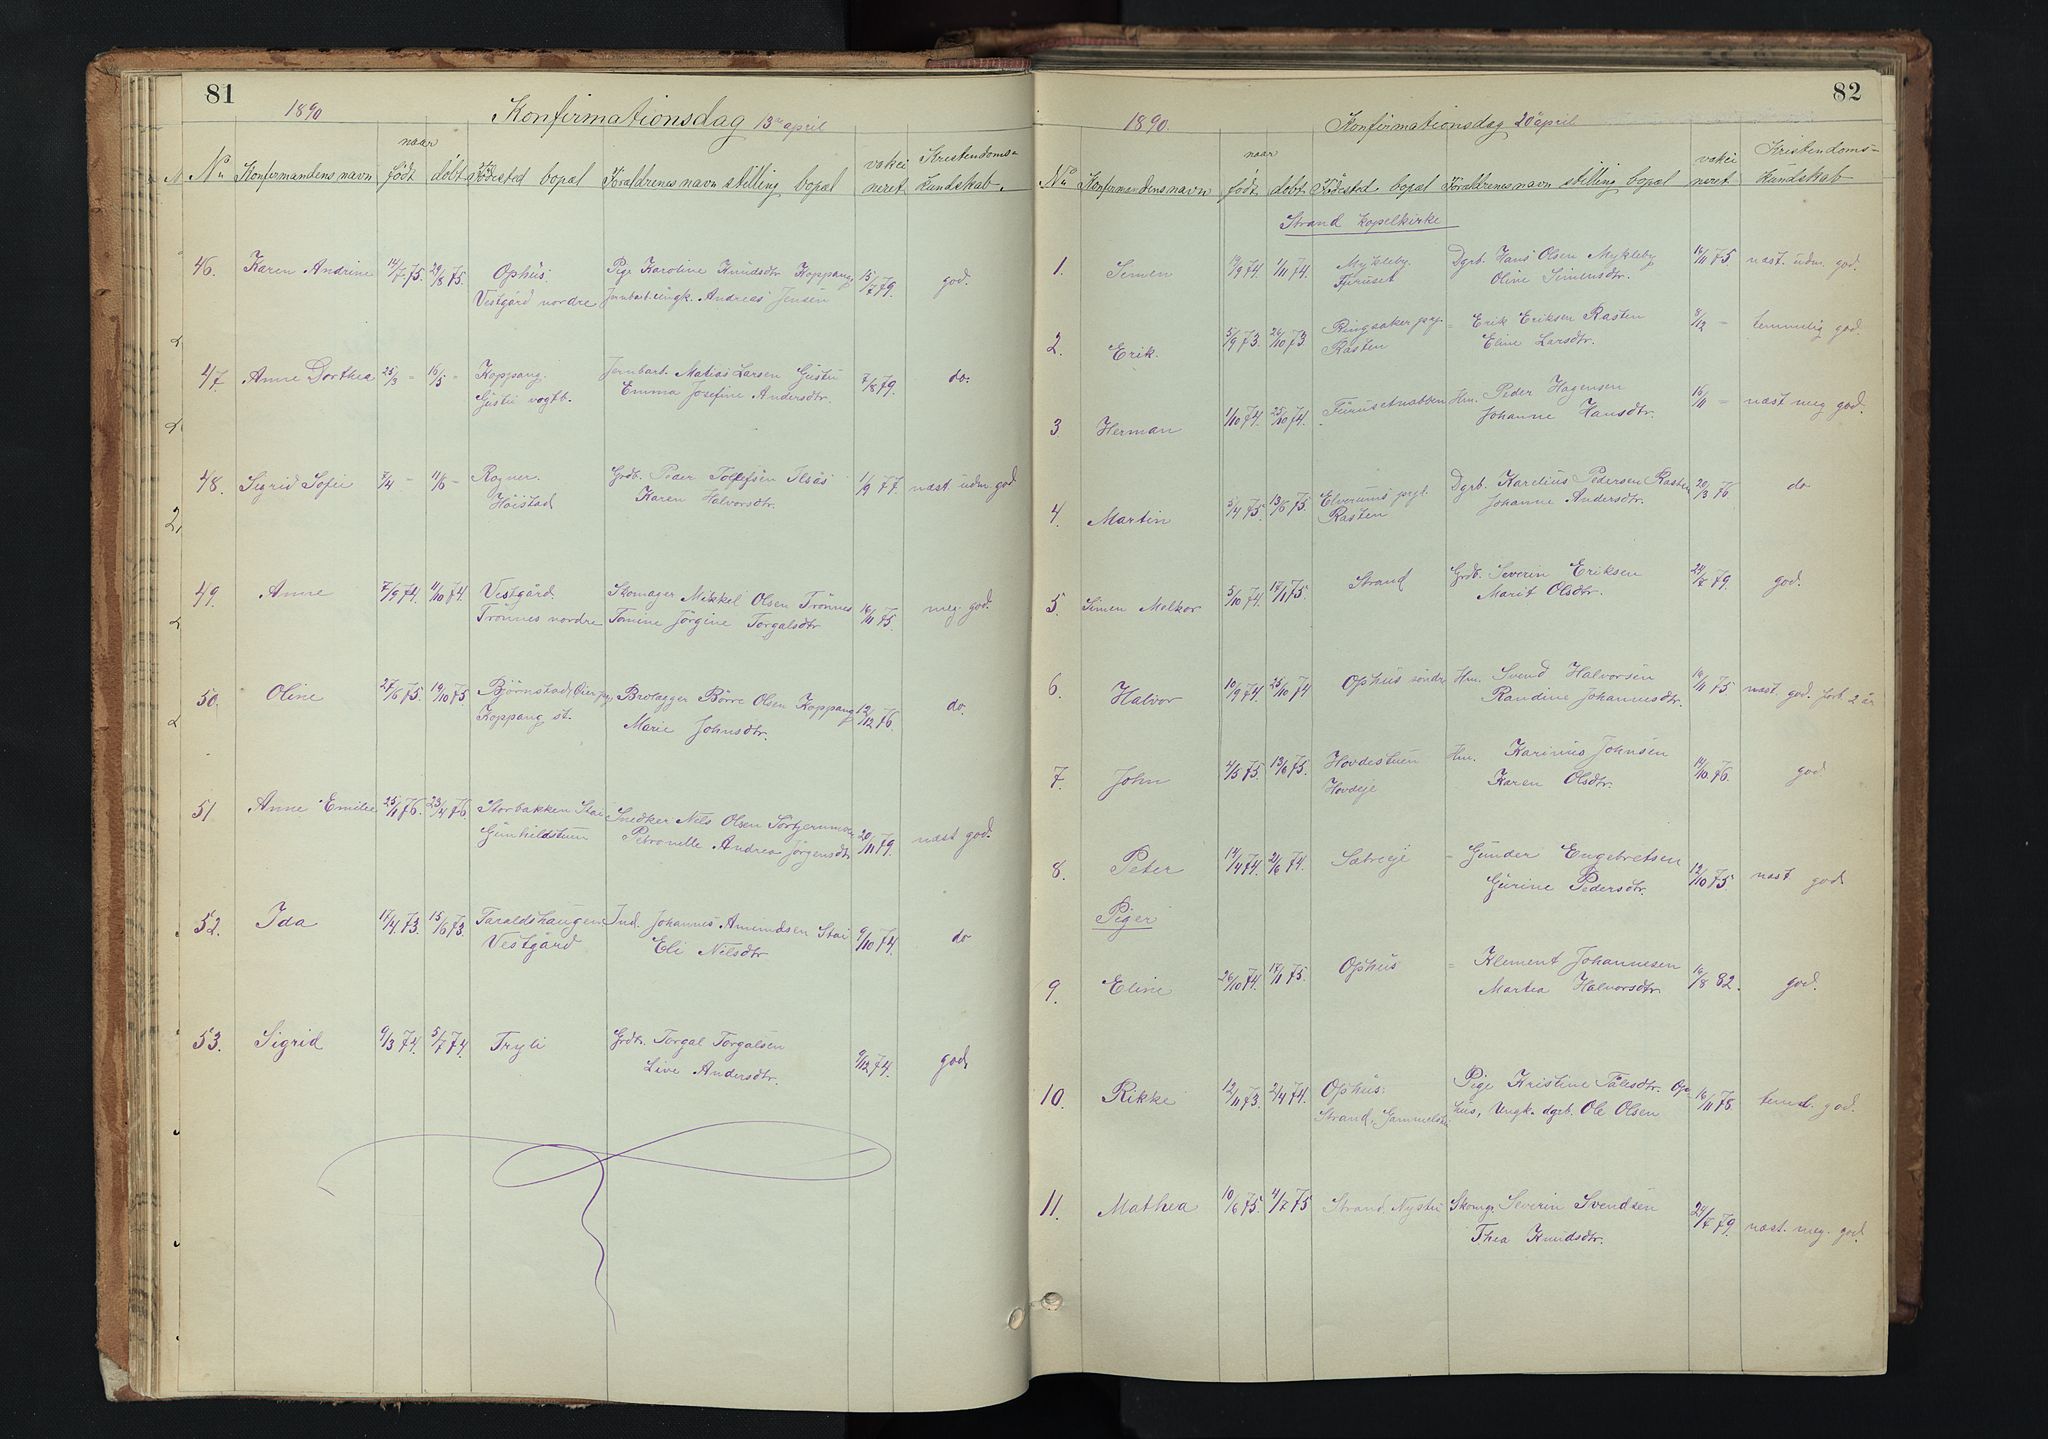 81
1890 Konfirmationsdag 13de april
naar
No Konfirmandens navn født døbt Fødested bopæl Foraldrenes navn stilling bopæl vakci Kristendoms-
neret kundskab
46. Karen Andrine 14/7 75. 29/8 75. Ophus Pige Karoline Knudsdtr Koppang 15/7 79. god.
Vestgård nordre Jernbart. ungk. Andreas Jensen
47 Anne Dorthea 25/3 = 16/5 = Koppang. Jernbart. Matias Larsen Gustu 7/8 79. do.
Gustu vogtb. Emma Josefine Andersdtr.
48. Sigrid Sofie 7/4 = 11/6 = Rogner. Grdb. Peder Tollefsen Ilsås 1/9 77. næst. udm. god
Höistad Karen Halvorsdtr.
49. Anne 7/9 74. 11/10 74. Vestgård Skomager Mikkel Olsen Trönnes 16/11 75. meg. god.
Trönnes nordre Tomine Jörgine Torgalsdtr
50. Oline 27/6 75. 19/10 75. Björnstad, Öier pgj. Brolægger Börre Olsen Koppang 12/12 76. do.
Koppang st. Marie Johnsdtr.
51 Anne Emilie 25/1 76. 23/4 76 Storbakken Stai Snedker Nils Olsen 20/11 79. næst god.
Gunhildstuen Petronelle Andrea Jörgensdtr
52. Ida 17/4 73. 15/6 73. Taraldshaugen Ind. Johannes Amundsen Stai 9/10 74. do
Vestgård Eli Nilsdtr
53. Sigrid 9/3 74. 5/7 74. Tryli Grdb. Torgal Torgalsen 9/12 74. god
Live Andersdtr.
82
1890. Konfirmationsdag 20de april
naar
No Konfirmandens navn født døbt Fødested bopæl Foraldrenes navn stilling bopæl vakci Kristendoms-
neret kundskab
Strand kapelkirke
1. Simen 19/9 74. 1/11 74. Mykleby. Dgrb. Hans Olsen Mykleby 16/11 75. næst. udm. god.
Furuset Oline Simensdtr.
2. Erik. 5/9 73. 26/10 73 Ringsaker pgj. = Erik Eriksen Rasten 8/12 = temmelig god.
Rasten Eline Larsdtr.
3. Herman 1/10 74. 25/10 74. Furusetnabben Hm. Peder Hagensen 16/11 = næst meg god.
Johanne Hansdtr.
4. Martin 5/4 75. 13/6 75. Elverums pgj. Dgrb. Karelius Pedersen Rasten 20/3 76 do
Rasten Johanne Andersdtr.
5. Simen Melkor 5/10 74. 17/1 75. Strand Grdb. Severin Eriksen 24/7 79. god.
Marit Olsdtr.
6. Halvor 10/9 74. 25/10 74 Ophus söndre Hm. Svend Halvorsen 14/11 75 næst god. forb. 2 år
Randine Johannesdtr.
7. John 4/5 75. 13/6 75. Hovdestuen Hm. Karinus Johnsen 14/10 76. god
Hovdeje Karen Olsdtr.
8. Peter 14/4 74. 21/6 74. Sætreje = Gunder Engebretsen 12/10 75. næst god
Gurine Pedersdtr.
Piger
9. Eline 26/10 74. 17/1 75. Ophus = Klement Johannesen 16/8 82. god.
Martea Halvorsdtr.
10. Rikke 12/11 73. 2/4 74. Ophus: Pige Kristine Pålesdtr. Op- 16/11 75. teml. god.
Strand, Gammelstu hus, Ungk. dgrb. Ole Olsen
11. Mathea 10/6 75. 4/7 75 Strand, Nystu Skomg. Severin Svendsen 24/7 79. næst. meg. god.
Thea Knudsdtr.